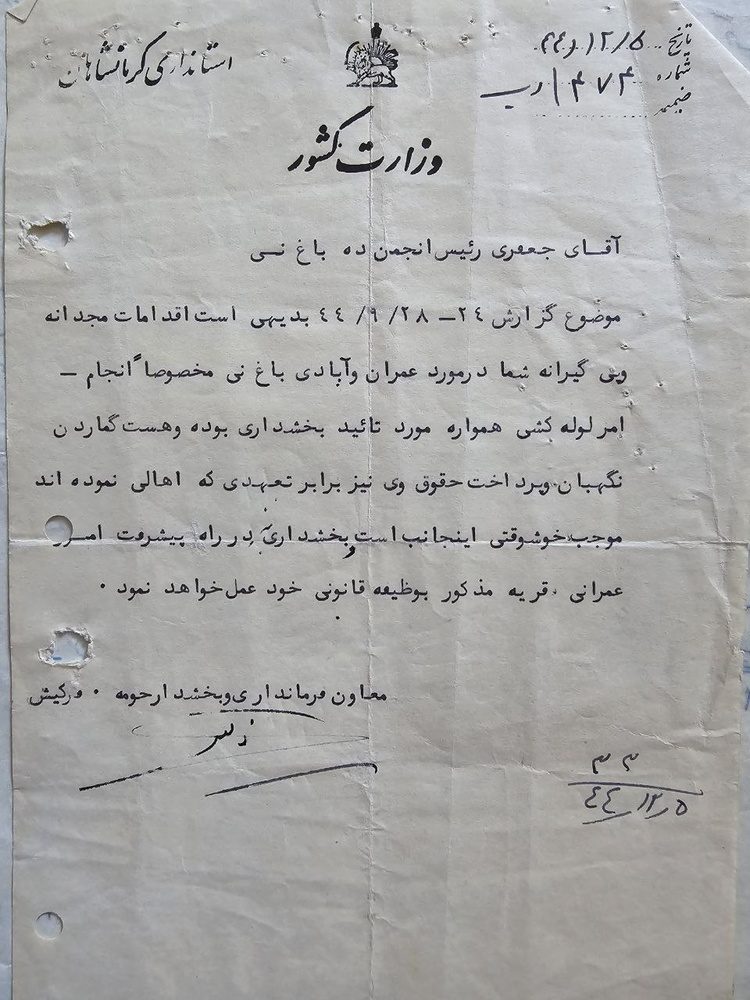 استانداری کرمانشاهان
تاریخ ۴۴/۱۲/۵
شماره ۴۷۴/ رب
ضمیمه
وزارت کشور
آقای جعفری رئیس انجمن ده باغ نی
موضوع گزارش ۲٤ــ ۲۸/ ۹/ ٤٤ بدیهی است اقدامات مجدانه
وپی گیرانه شما درمورد عمران وآبادی باغ نی مخصوصاً انجام ــ
امر لوله کشی همواره مورد تائید بخشداری بوده وهست گماردن
نگهبان وپرداخت حقوق وی نیز برابر تعهدی که اهالی نموده اند
موجب خوشوقتی اینجانب است وبخشداری در راه پیشرفت امور
عمرانی قریه مذکور بوظیفه قانونی خود عمل خواهد نمود ۰
معاون فرمانداری وبخشدار حومه ۰
۳۳
٤٤/۱۲/۵